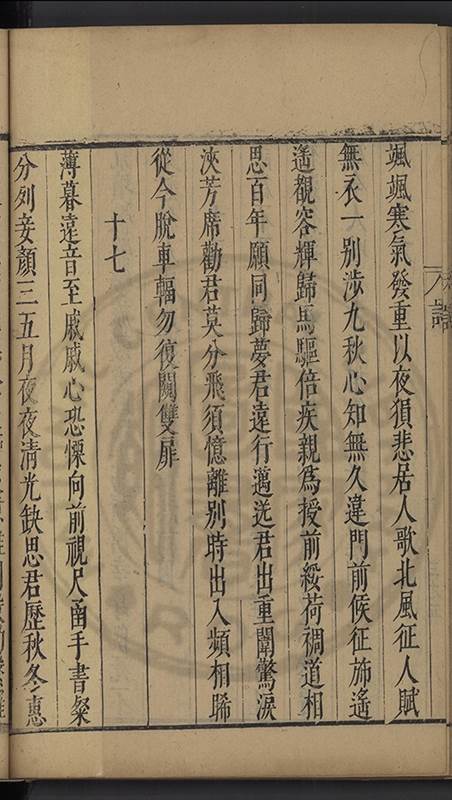 颯颯寒氣發重以夜須悲居人歌北風征人賦
無衣一別涉九秋心知無久違門前候征斾遙
遙覩容輝歸馬驅倍疾親爲授前綏荷裯道相
思百年願同歸夢君遠行邁送君出重闈驚淚
浹芳席勸君莫分飛須憶離別時出入頻相睎
從今脫車輻勿復闗雙扉
十七
薄暮遠音至戚戚心恐慄向前視尺函手書粲
分列妾顏三五月夜夜清光缺思君歷秋冬惠